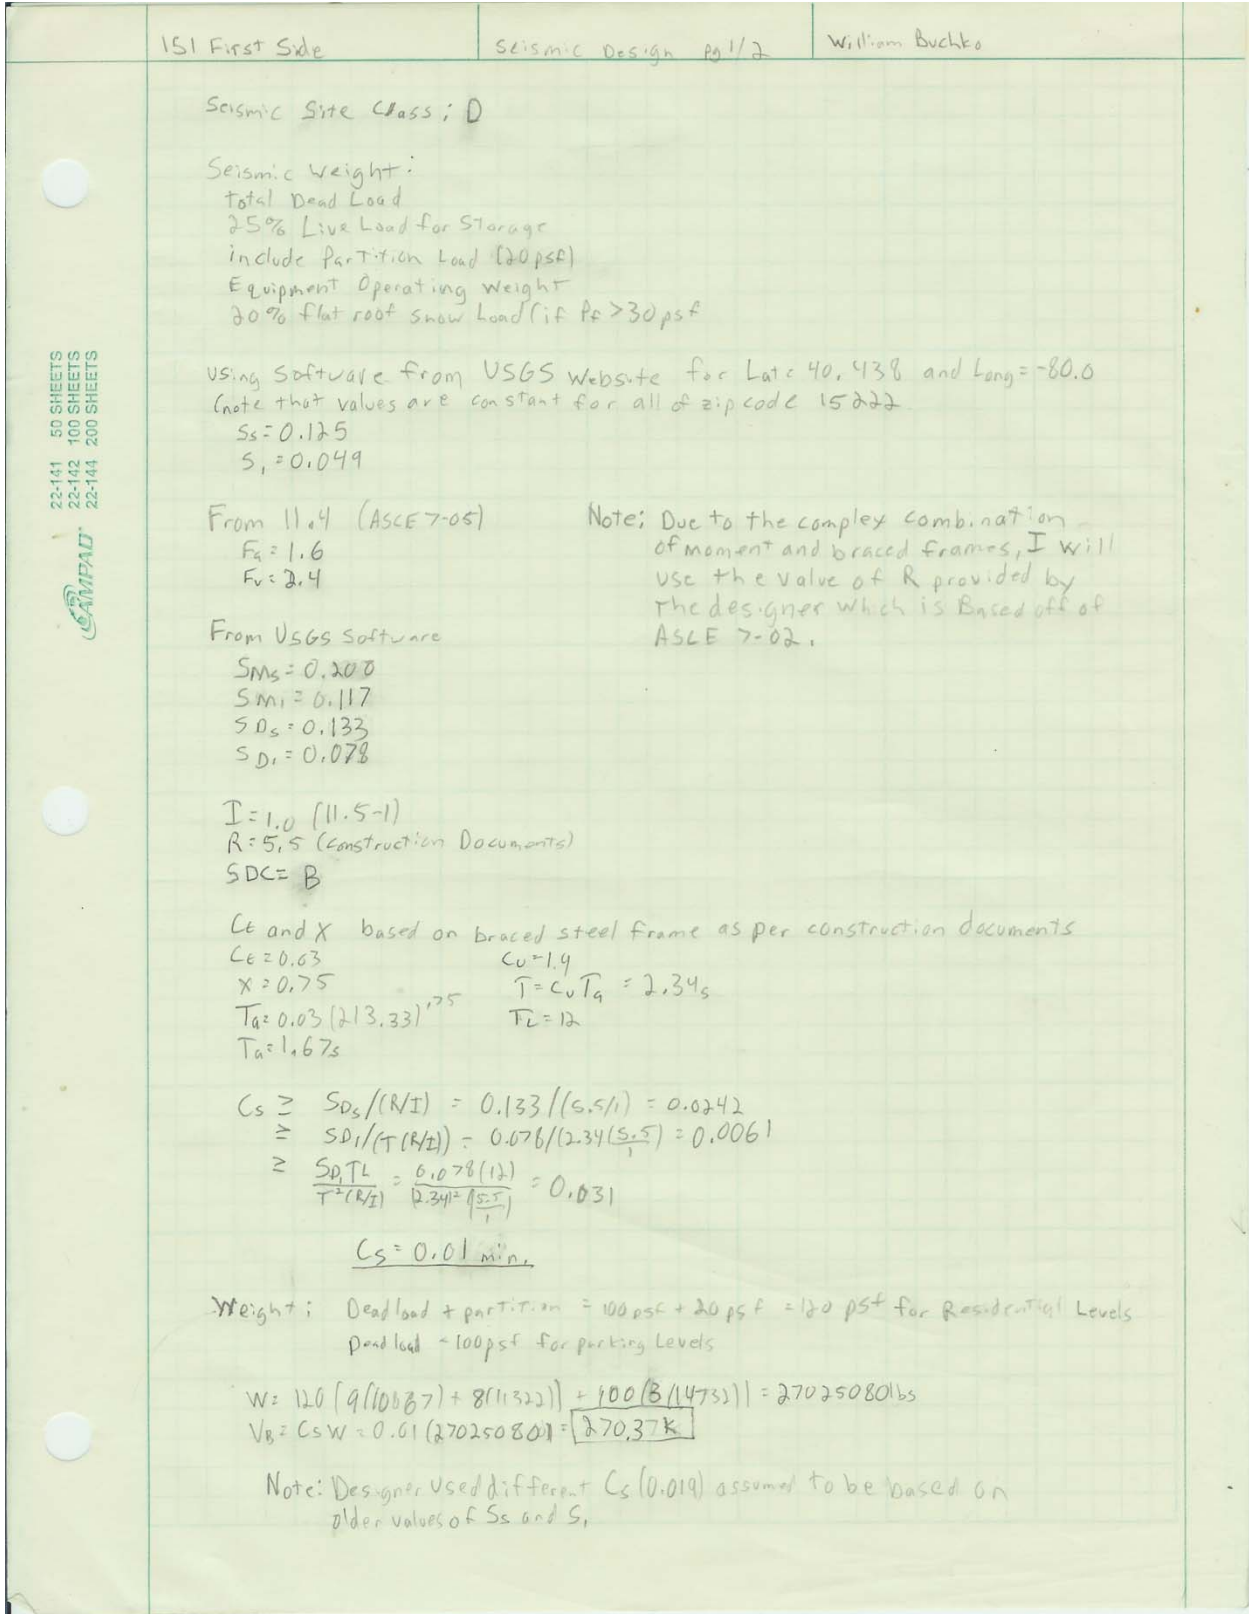 151 First Side
Seismic Design pg 1/2
William Buchko
Seismic Site Class: D
Seismic Weight:
total Dead Load
25% Live Load for Storage
include Partition Load (20psf)
Equipment Operating Weight
20% flat roof snow Load (if Pf >30psf
22-141 50 SHEETS
22-142 100 SHEETS
22-144 200 SHEETS
AMPAD
Using Software from USGS Website for Lat= 40.438 and Long=-80.0
(note that values are constant for all of zipcode 15222
Ss=0.125
S1=0.049
From 11.4 (ASCE 7-05)
Fa=1.6
Fv=2.4
Note: Due to the complex combination
of moment and braced frames, I will
use the value of R provided by
the designer which is Based off of
ASCE 7-02.
From USGS Software
SMs=0.200
SM1=0.117
SDs=0.133
SD1=0.078
I=1.0 (11.5-1)
R=5.5 (Construction Documents)
SDC= B
Ct and X based on braced steel frame as per construction documents
Ct=0.03 Cu=1.4
X=0.75 T=CuTa = 2.34s
Ta=0.03(213.33)^.75 TL=12
Ta=1.67s
Cs ≥ SDs/(R/I) = 0.133/(5.5/1) = 0.0242
≥ SD1/(T(R/I)) = 0.078/(2.34(5.5/1) = 0.0061
≥ SD1TL/T²(R/I) = 0.078(12)/(2.34)²(5.5/1) = 0.031
Cs=0.01 min.
Weight: Dead load + partition = 100psf + 20psf = 120 psf for Residential Levels
Dead load =100psf for parking Levels
W= 120 [9(10667) + 8(11322)] + 100(3(14732)) = 27025080lbs
VB=CsW=0.01(27025080)=270.37K
Note: Designer used different Cs(0.019) assumed to be based on
older values of Ss and S1